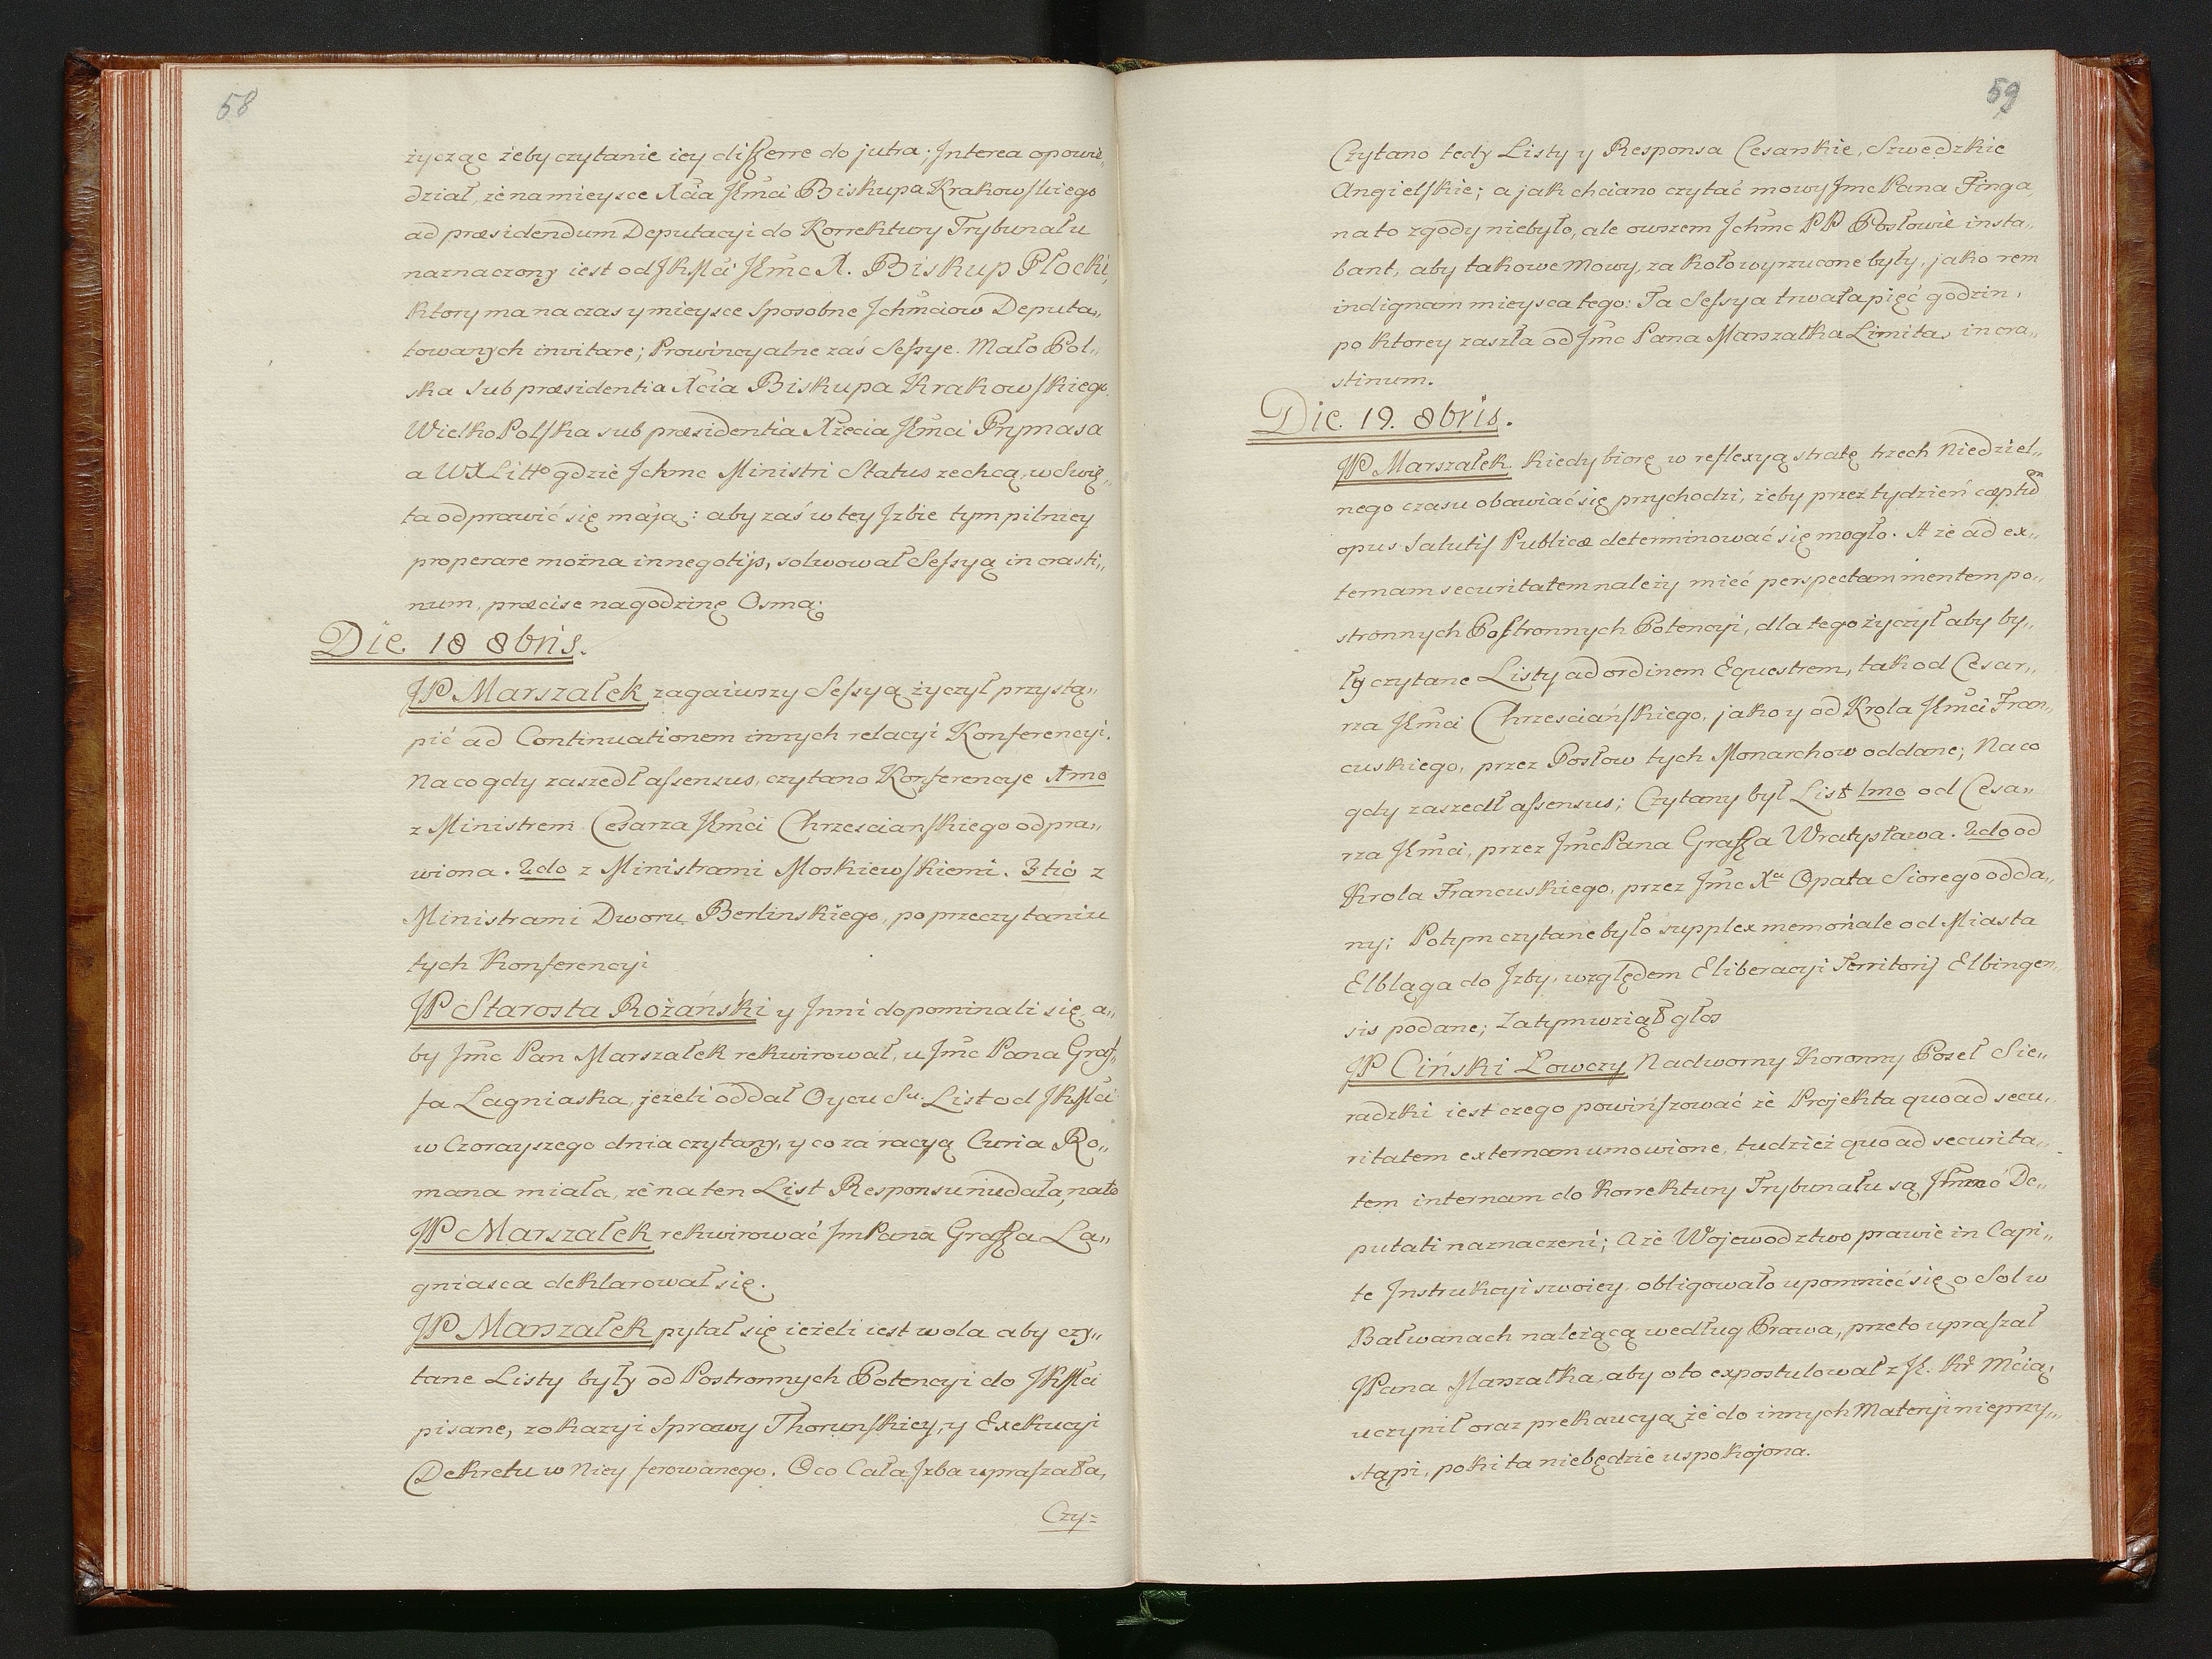 58
życząc żeby czytanie iey differre do jutra. Interea opowie„
dział, że na mieysce Xcia JKmci Biskupa Krakowskiego
ad præsidendum Deputacyi do Korrektury Trybunału
naznaczony iest od JKMci JKmc X. Biskup Płocki,
ktory ma na czas y mieysce sposobne Ichmciow Deputa„
towanych invitare; Prowincyalne zaś Sessye. Mało Pol„
ska sub præsidentia Xcia Biskupa Krakowskiego.
Wielko Polska sub præsidentia Xżęcia JKmci Prymasa
a WXLitto gdzie Ichmc Ministri Status zechcą, w Swię„
ta odprawić się mają: aby zaś w tey Izbie tym pilniey
properare można in negotijs, solwował Sessyą in crasti„
num, præcise na godzinę Osmą.
Die 18 8bris.
JP Marszałek zagaiwszy Sessyą życzył przystą„
pić ad Continuationem innych relacyi Konferencyi.
Na co gdy zaszedł assensus, czytano Konferencye 1mo
z Ministrem Cesarza JKmci Chrzescianskiego odpra„
wiona. 2do z Ministrami Moskiewskiemi. 3tió z
Ministrami Dworu Berlinskiego, po przeczytaniu
tych Konferencyi
JP Starosta Rożański y Inni dopominali się, a„
by Jmc Pan Marszałek rekwirował, u Jmc Pana Graf„
fa Lagniaska, jeżeli oddał Oycu Su. List od JKMci
w Czorayszego dnia czytany, y co za racyą Curia Ro„
mana miała, że na ten List Responsu niedała, na to
JP Marszałek rekwirować Jm Pana Graffa La„
gniasca deklarował się.
JP Marszałek pytał się ieżeli iest wola aby czy„
tane Listy były od Postronnych Potencyi do JKMci
pisane, z okazyi Sprawy Thorunskiey, y Exekucyi
Dekretu w Niey ferowanego. O co Cała Izba upraszała,
Czy=
59
Czytano tedy Listy y Responsa Cesarskie, Szwedzkie
Angielskie; a jak chciano czytać mowy Jmc Pana Finga,
na to zgody niebyło, ale owszem Ichmc PP Posłowie insta„
bant, aby takowe Mowy, za koło wyrzucone były, jako rem
indignam mieysca tego: Ta Sessya trwała pięć godzin,
po ktorey zaszła od Jmc Pana Marszałka Limita, in cra„
stinum.
Die. 19. 8bris.
JP Marszałek. Kiedy biorę w reflexyą stratę trzech Niedziel„
nego czasu obawiać się przychodzi, żeby przez tydzień cæptum
opus Salutis Publicæ determinować się mogło. A że ad ex„
ternam securitatem należy mieć perspectam mentem po„
stronnych Postronnych Potencyi, dla tego życzył aby by„
ły czytane Listy ad ordinem Equestrem, tak od Cesar„
rza JKmci Chrzesciańskiego, jako y od Krola JKmci Fran„
cuskiego, przez Posłow tych Monarchow oddane; Na co
gdy zaszedł assensus; Czytany był List 1mo od Cesa„
rza JKmci, przez Jmc Pana Graffa Wratysława. 2do od
Krola Francuskiego, przez Jmc Xa Opata Siorego odda„
ny; Potym czytane było supplex memoriale od Miasta
Elbląga do Izby, względem Eliberacyi Territorij Elbingen„
sis podane; Zatym wziął głos
JP Ciński Łowczy Nadworny Koronny Poseł Sie„
radzki iest czego powinszować że Projekta quoad secu„
ritatem externam umowione, tudzież quo ad securita„
tem internam do Korrektury Trybunału są De„
putati naznaczeni; A że Wojewodztwo prawie in Capi„
te Instrukcyi swoiey, obligowało upomnieć się o Sol w
Bałwanach należącą według Prawa, przeto upraszał
JPana Marszałka, aby o to expostulował z JK. Kr Mcią,
uczynił oraz prekaucyą że do innych Materyi nieprzy„
stąpi, poki ta niebędzie uspokojona.